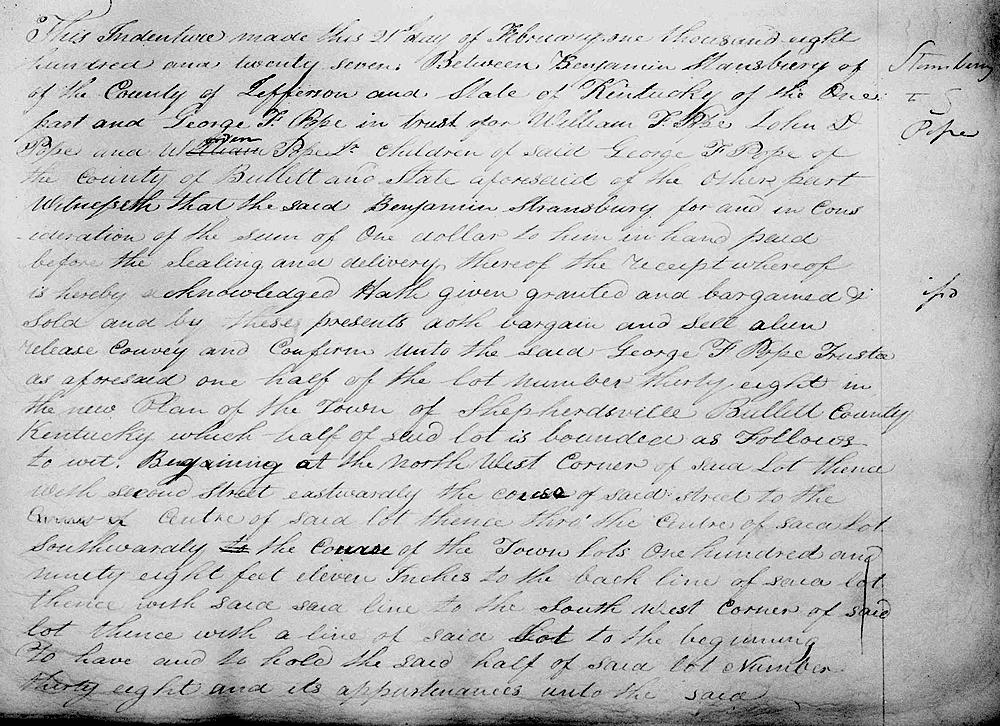 This Indenture made this 21st day of February one thousand eight
hundred and twenty seven. Between Benjamin Stansbury of
of the County of Jefferson and State of Kentucky of the One
part and George F. Pope in trust for William F Pope John D
Pope and Pope Jr children of said George F Pope of
the County of Bullitt and State aforesaid of the Other part
Witnesseth that the said Benjamin Stransbury for and in Cons
ideration of the sum of One dollar to him in hand paid
before the Sealing and delivery thereof the receipt whereof
is hereby acknowledged Hath given granted and bargained &
Sold and by these presents doth bargain and sell alien
release Convey and Confirm unto the said George F Pope Trustee
as aforesaid one half of the lot number thirty eight in
the new Plan of the Town of Shepherdsville Bullitt County
Kentucky which half of said lot is bounded as Follows
to wit. Begaining at the North West Corner of said Lot thence
with second street eastwardly the course of said street to the
Centre of said lot thence thro' the Centre of said Lot
Southwardly to the Course of the Town lots One hundred and
ninety eight feet eleven Inches to the back line of said lot
thence with said said line to the South West Corner of said
lot thence with a line of said Lot to the beginning
To have and to hold the said half of said lot Number
thirty eight and its appurtenances unto the said
Stansbury
To
Pope